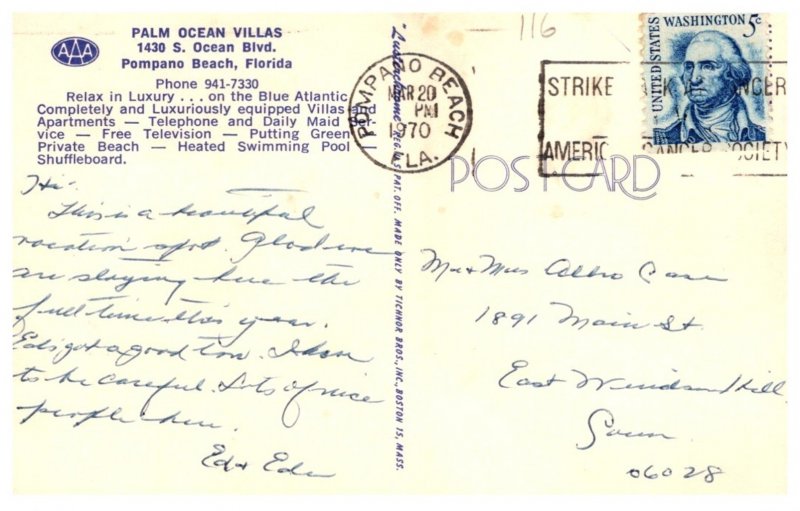 PALM OCEAN VILLAS
1430 S. Ocean Blvd.
Pompano Beach, Florida
AAA
Phone 941-7330
Relax in Luxury . . . on the Blue Atlantic
Completely and Luxuriously equipped Villas and
Apartments — Telephone and Daily Maid Ser-
vice — Free Television — Putting Green
Private Beach — Heated Swimming Pool
Shuffleboard.
Hi -
This is a beautiful
vacation spot. Glad we
are staying here the
full time this year.
Ed's got a good tan. I have
to be careful. Lots of nice
people here.
Ed & Eda
"Lustrachrome" REG. U.S. PAT. OFF. MADE ONLY BY TICHNOR BROS., INC., BOSTON 15, MASS.
116
POMPANO BEACH
MAR 20
PM
1970
FLA.
STRIKE BACK AT CANCER
AMERICAN CANCER SOCIETY
UNITED STATES
WASHINGTON 5c
POST CARD
Mr & Mrs Case
1891 Main St.
East Windsor Hill
Conn
06028